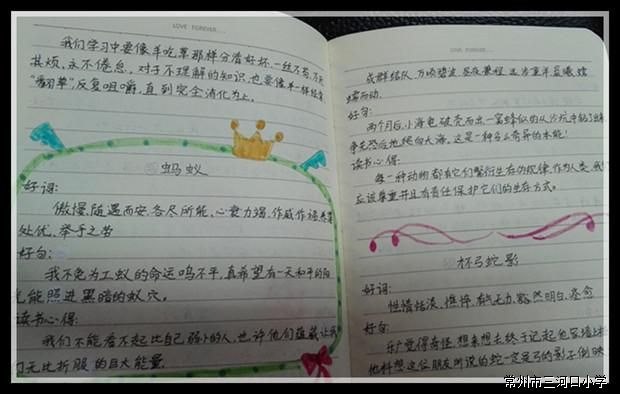 LOVE FOREVER...
我们学习中要像羊吃草那样分清好坏,一丝不苟,不
其烦,永不倦怠,对于不理解的知识,也要像羊一样经常
"翻草",反复咀嚼,直到完全消化为止。
蚂蚁
好词:
傲慢,随遇而安,各尽所能,心
处优,举手之劳
好句:
我不免为工蚁的命运鸣不平,真希望有一天和平的阳
能照进黑暗的蚁穴。
读书心得:
我们不能看不起比自己弱小的人,也许他们蕴藏让我
们无比折服的巨大能量。
LOVE FOREVER...
成群结队,万顷碧波,
蠕而动。
好句:
两个月后,小海龟破壳而出,一窝蜂似的从沙坑中钻了出来
争先恐后地爬向大海,这是一种多么奇异的本能!
读书心得:
每一种动物都有它们繁衍生存的规律,作为人类,我们
应该尊重并且有责任保护它们的生存方式。
杯弓蛇影
好词:
性情恬淡,憔悴,有气无力,豁然明白,
好句:
乐广觉得奇怪,想来想去终于记起他家墙上
他料想这位朋友所说的蛇一定是弓的影子倒映
常州市三河口小学